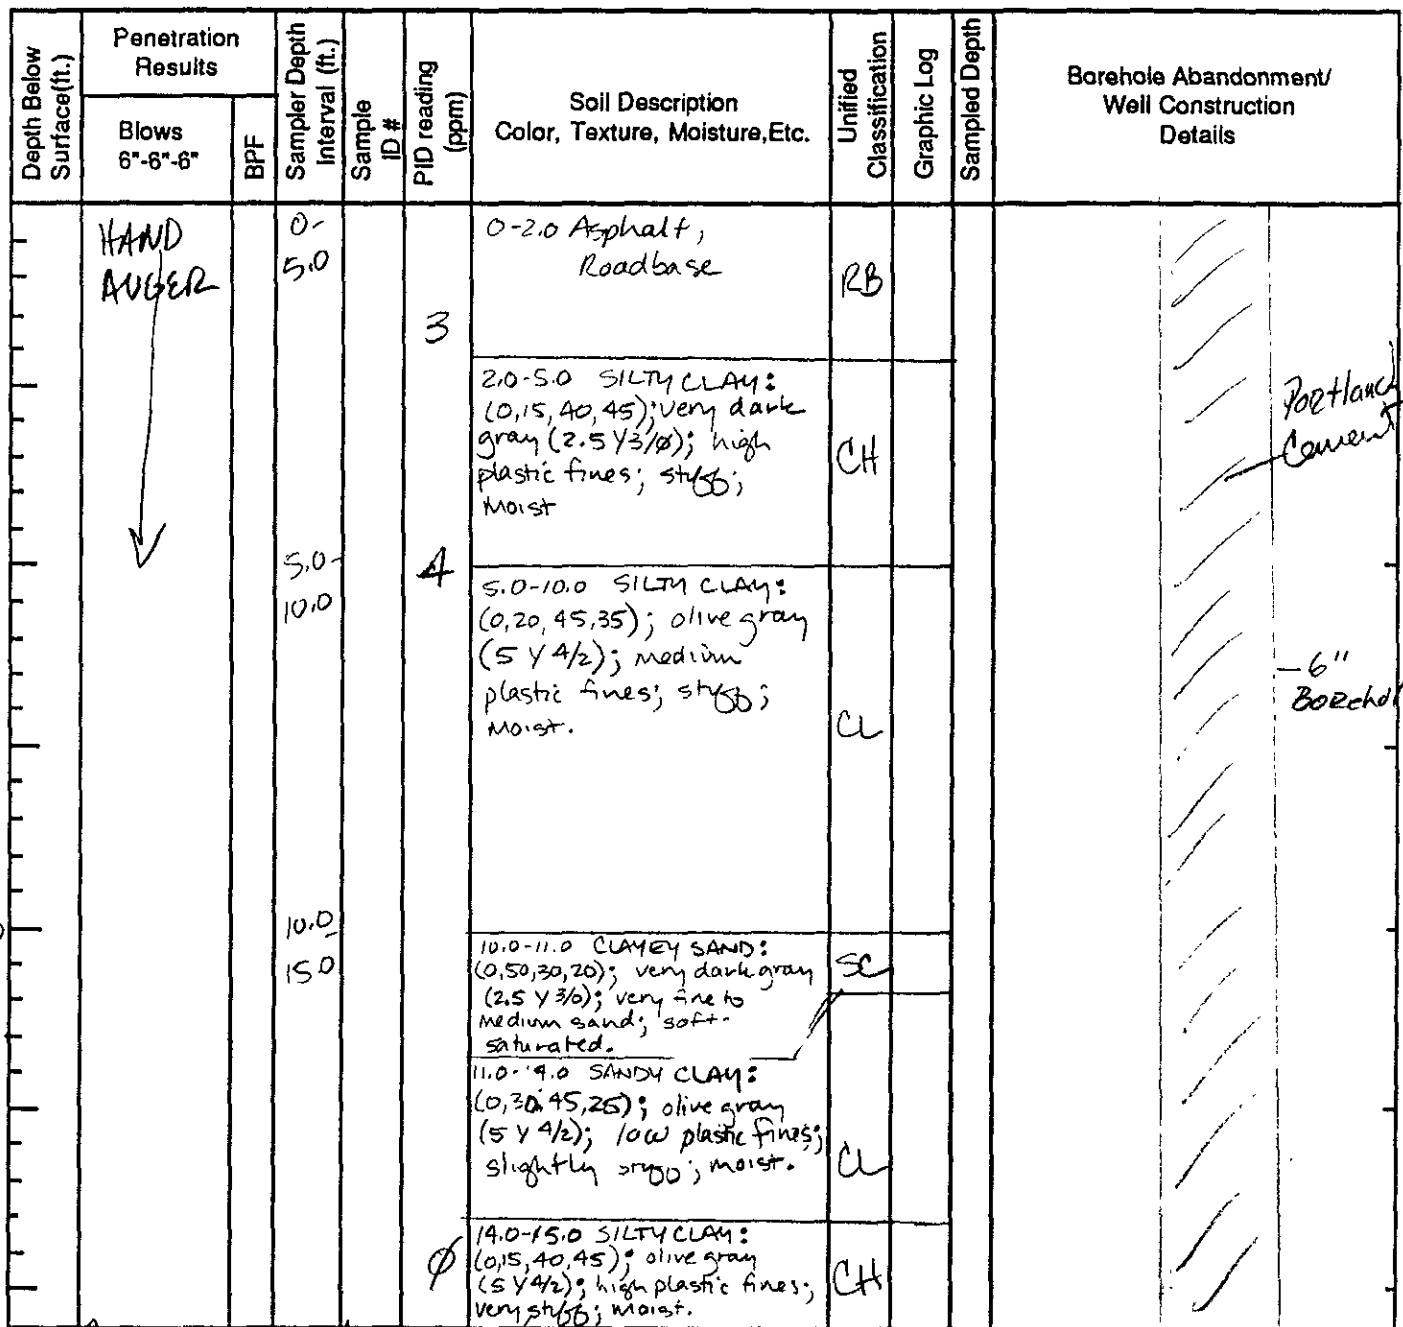 Depth Below
Surface(ft.)
Penetration
Results
Blows
6"-6"-6"
BPF
Sampler Depth
Interval (ft.)
Sample
ID #
PID reading
(ppm)
Soil Description
Color, Texture, Moisture,Etc.
Unified
Classification
Graphic Log
Sampled Depth
Borehole Abandonment/
Well Construction
Details
HAND
AUGER
0-
5.0
3
0-2.0 Asphalt,
Roadbase
RB
2.0-5.0 SILTY CLAY:
(0,15,40,45); very dark
gray (2.5 Y3/0); high
plastic fines; stiff;
Moist
CH
Portland
Cement
5.0-
10.0
4
5.0-10.0 SILTY CLAY:
(0,20,45,35); olive gray
(5 Y 4/2); medium
plastic fines; stiff;
Moist.
CL
-6"
Borehol
10.0
15.0
10.0-11.0 CLAYEY SAND:
(0,50,30,20); very dark gray
(2.5 Y 3/0); very fine to
medium sand; soft-
saturated.
SC
11.0-14.0 SANDY CLAY:
(0,30,45,25); olive gray
(5 Y 4/2); low plastic fines;
slightly stiff; moist.
CL
0
14.0-15.0 SILTY CLAY:
(0,15,40,45); olive gray
(5 Y 4/2); high plastic fines;
very stiff; moist.
CH